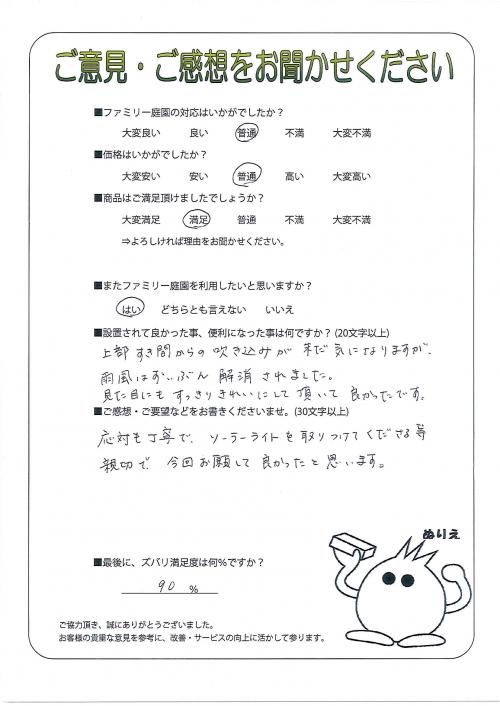 ご意見・ご感想をお聞かせください
■ファミリー庭園の対応はいかがでしたか？
大変良い 良い 普通 不満 大変不満
■価格はいかがでしたか？
大変安い 安い 普通 高い 大変高い
■商品はご満足頂けましたでしょうか？
大変満足 満足 普通 不満 大変不満
⇒よろしければ理由をお聞かせください。
■またファミリー庭園を利用したいと思いますか？
はい どちらとも言えない いいえ
■設置されて良かった事、便利になった事は何ですか？(20文字以上)
上部すき間からの吹き込みが未だ気になりますが、
雨風はずいぶん解消されました。
見た目にもすっきりきれいにして頂いて良かったです。
■ご感想・ご要望などをお書きくださいませ。(30文字以上)
応対も丁寧で、ソーラーライトを取りつけてくださる等
親切で今回お願して良かったと思います。
ぬりえ
■最後に、ズバリ満足度は何％ですか？
90 ％
ご協力頂き、誠にありがとうございました。
お客様の貴重な意見を参考に、改善・サービスの向上に活かして参ります。